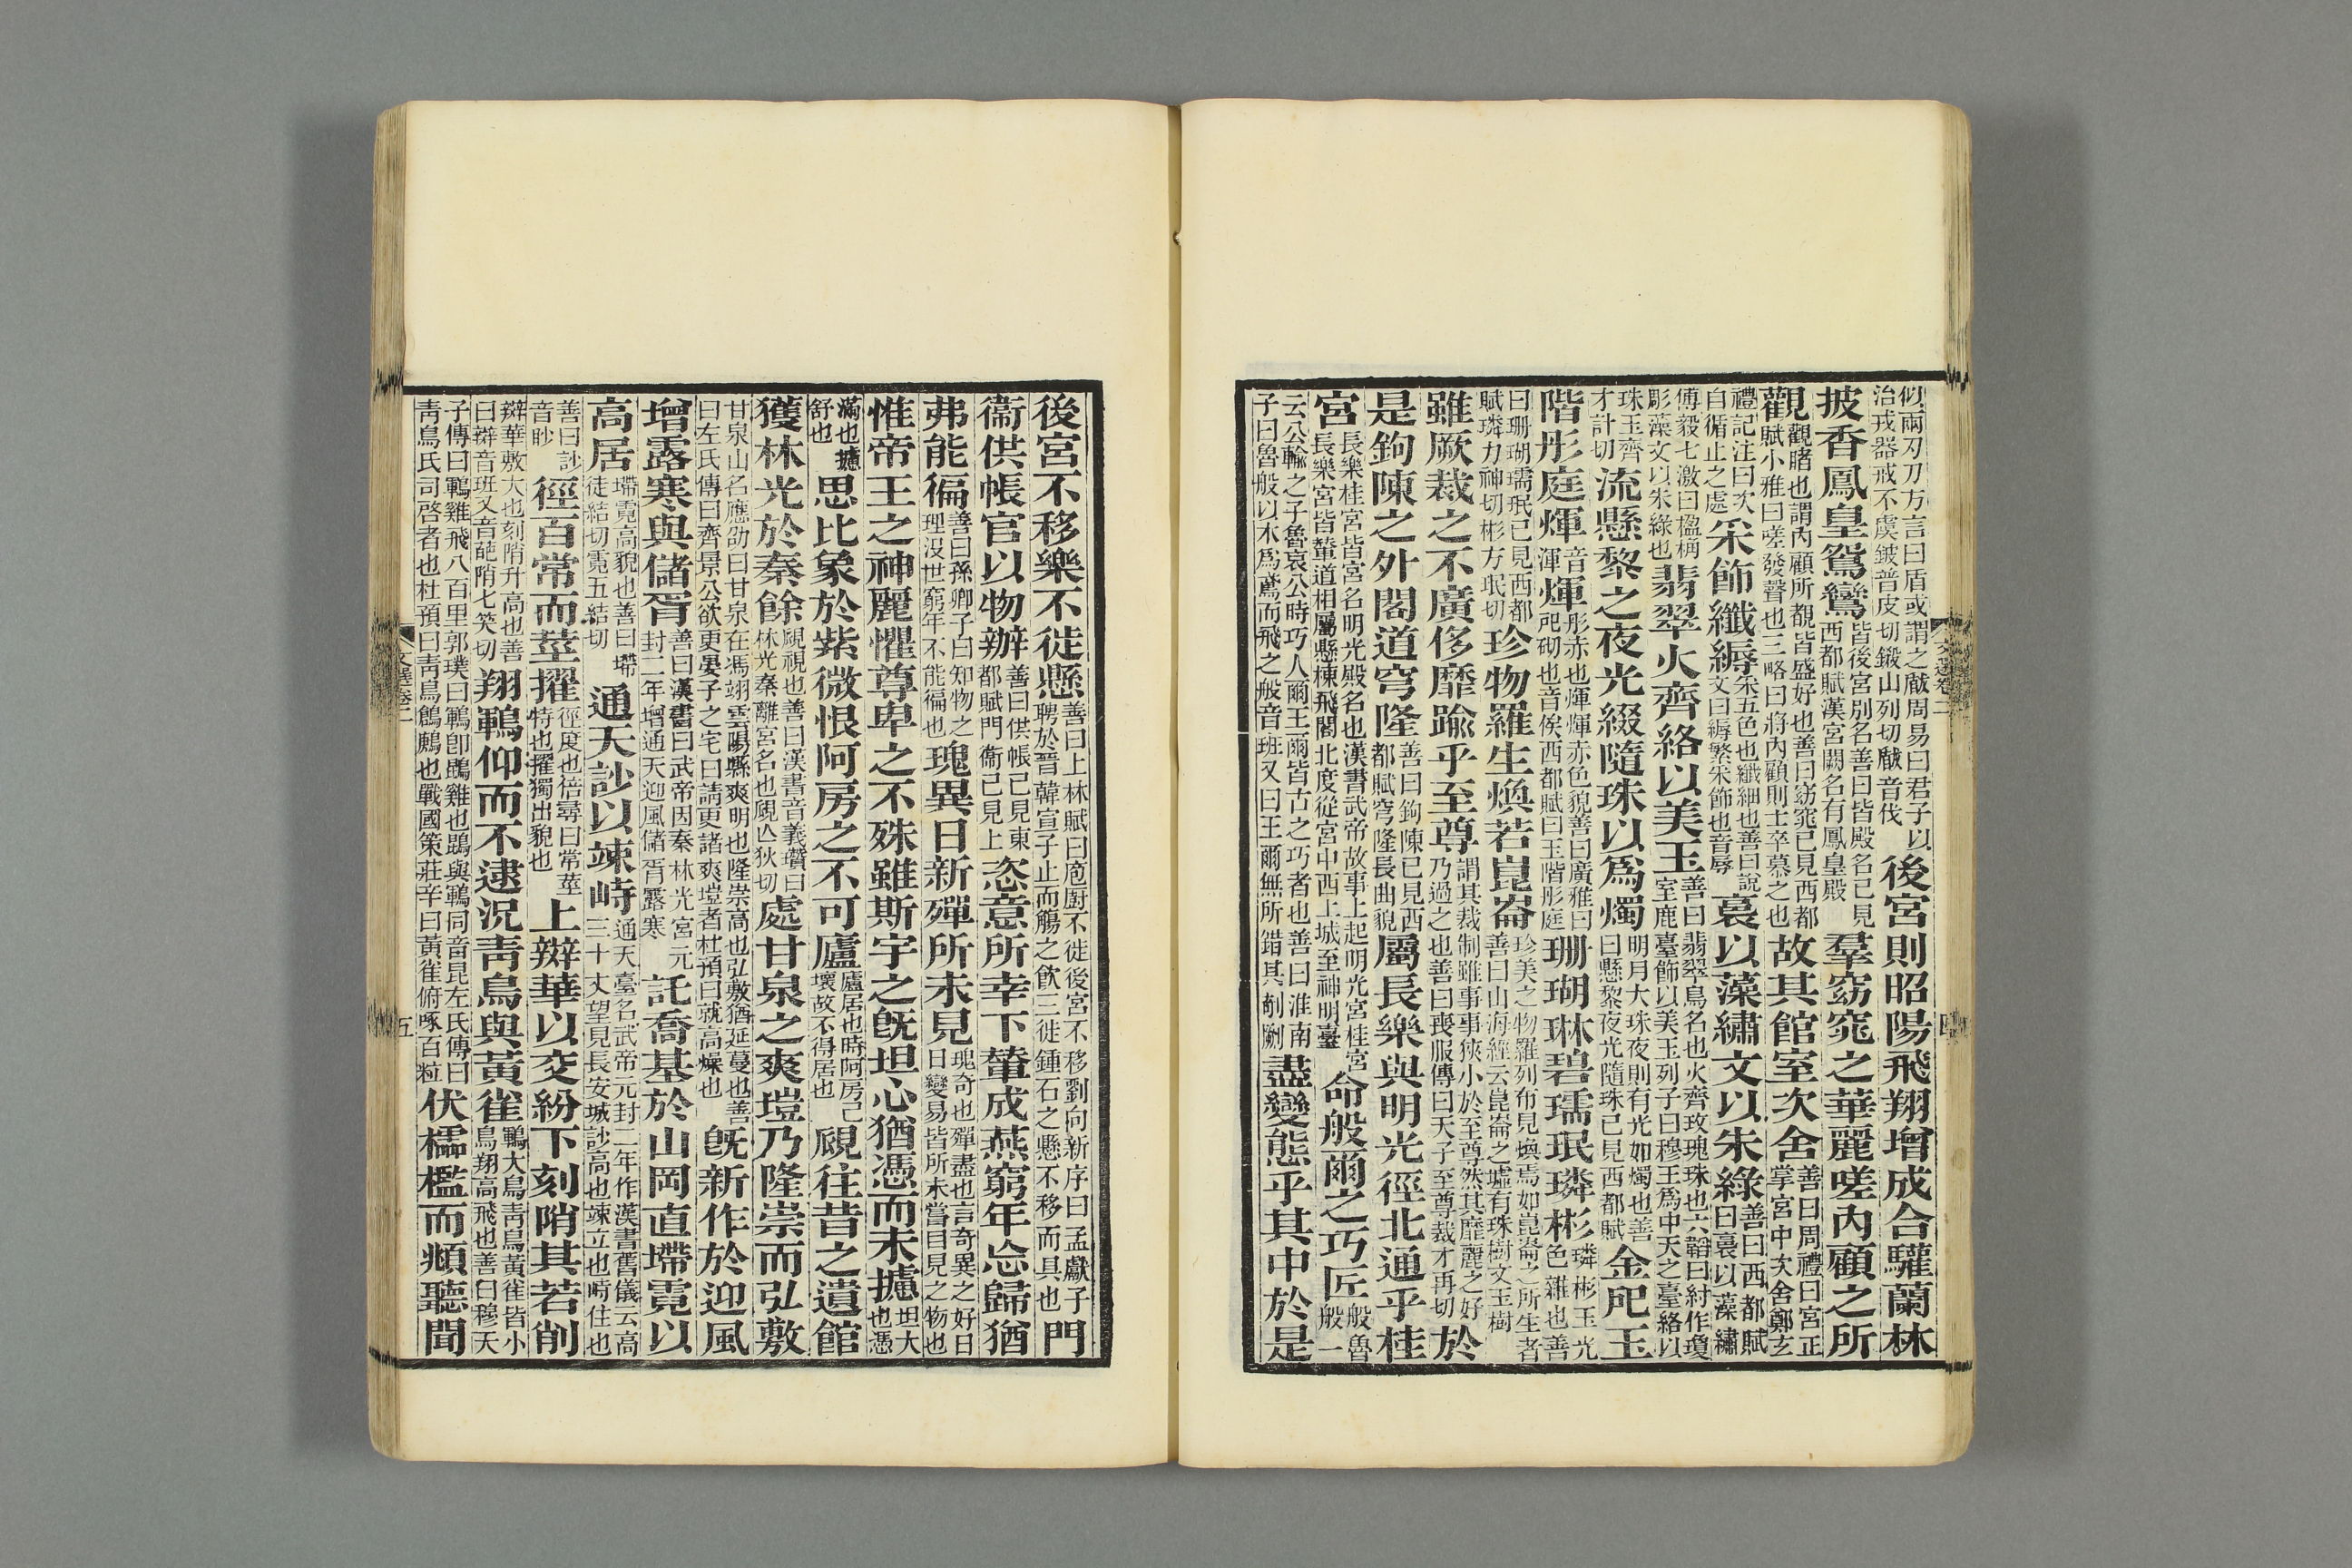 似兩刃刀方言曰盾或謂之瞂周易曰君子以治戎器戒不虞鈹普皮切鎩山列切瞂音伐後宮則昭陽飛翔增成合驩蘭林
披香鳳皇鴛鸞皆後宮別名善曰皆殿名已見西都賦漢宮闕名有鳳皇殿羣窈窕之華麗嗟內顧之所
觀觀睹也謂內顧所覩皆盛好也善曰窈窕已見西都賦小雅曰嗟發聲也三略曰將內顧則士卒慕之也故其館室次舍善曰周禮曰宮正掌宮中次舍鄭玄
禮記注曰次自循止之處采飾纖縟采五色也纖細也善曰說文曰縟繁采飾也音辱裛以藻繡文以朱綠善曰西都賦曰裛以藻繡
傅毅七激曰楹桷彫藻文以朱綠也翡翠火齊絡以美玉善曰翡翠鳥名也火齊玫瑰珠也六韜曰紂作瓊室鹿臺飾以美玉列子曰穆王爲中天之臺絡以
珠玉齊才計切流懸黎之夜光綴隨珠以爲燭明月大珠夜則有光如燭也善曰懸黎夜光隨珠已見西都賦金戺玉
階彤庭煇煇音渾彤赤也煇煇赤色貌善曰廣雅曰戺砌也音俟西都賦曰玉階彤庭珊瑚琳碧瓀珉璘彬璘彬玉光色雜也善
曰珊瑚瓀珉已見西都賦璘力神切彬方珉切珍物羅生煥若崑崙珍美之物羅列布見煥焉如崑崙之所生者善曰山海經云崑崙之墟有珠樹文玉樹
雖厥裁之不廣侈靡踰乎至尊謂其裁制雖事事狹小於至尊然其靡麗之好乃過之也善曰喪服傳曰天子至尊裁才再切於
是鉤陳之外閣道穹隆善曰鉤陳已見西都賦穹隆長曲貌屬長樂與明光徑北通乎桂
宮長樂桂宮皆宮名明光殿名也漢書武帝故事上起明光宮桂宮長樂宮皆輦道相屬懸棟飛閣北度從宮中西上城至神明臺命般爾之巧匠般魯般一
云公輸之子魯哀公時巧人爾王爾皆古之巧者也善曰淮南子曰魯般以木爲鳶而飛之般音班又曰王爾無所錯其剞劂盡變態乎其中於是
後宮不移樂不徙懸善曰上林賦曰庖廚不徙後宮不移劉向新序曰孟獻子聘於晉韓宣子止而觴之飲三徙鍾石之懸不移而具也門
衞供帳官以物辦善曰供帳已見東都賦門衞已見上恣意所幸下輦成燕窮年忘歸猶
弗能徧善曰孫卿子曰知物之理沒世窮年不能徧也瑰異日新殫所未見瑰奇也殫盡也言奇異之好日日變易皆所未嘗目見之物也
惟帝王之神麗懼尊卑之不殊雖斯宇之旣坦心猶憑而未攄坦大也憑
滿也攄舒也思比象於紫微恨阿房之不可廬廬居也時阿房已壞故不得居也覛往昔之遺館
獲林光於秦餘覛視也善曰漢書音義瓚曰林光秦離宮名也覛亾狄切處甘泉之爽塏乃隆崇而弘敷
甘泉山名應劭曰甘泉在馮翊雲陽縣爽明也隆崇高也弘敷猶延蔓也善曰左氏傳曰齊景公欲更晏子之宅曰請更諸爽塏者杜預曰就高燥也旣新作於迎風
增露寒與儲胥善曰漢書曰武帝因秦林光宮元封二年增通天迎風儲胥露寒託喬基於山岡直墆霓以
高居墆霓高貌也善曰墆徒結切霓五結切通天訬以竦峙通天臺名武帝元封二年作漢書舊儀云高三十丈望見長安城訬高也竦立也峙住也
善曰訬音眇徑百常而莖擢徑度也倍尋曰常莖特也擢獨出貌也上辬華以交紛下刻陗其若削
辬華敷大也刻陗升高也善曰辬音班又音葩陗七笑切翔鶤仰而不逮況靑鳥與黃雀鶤大鳥靑鳥黃雀皆小鳥翔高飛也善曰穆天
子傳曰鶤雞飛八百里郭璞曰鶤卽鵾雞也鵾與鶤同音昆左氏傳曰靑鳥氏司啓者也杜預曰靑鳥鶬鴳也戰國策莊辛曰黃雀俯啄百粒伏櫺檻而頫聽聞
文選卷二
四
文選卷二
五